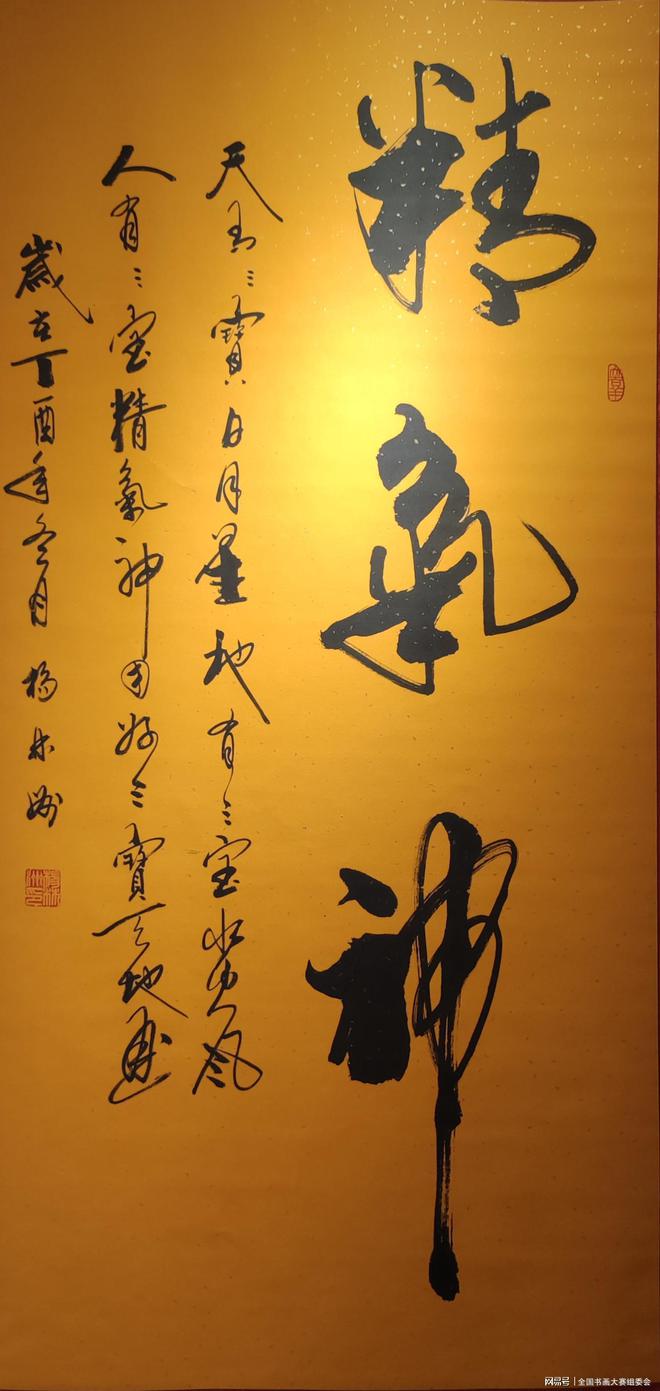 精氣神
天有三寶日月星地有三宝水火风
人有三宝精氣神用好三寶天地通
歲在丁酉年冬月 楊林
网易号 | 全国书画大赛组委会